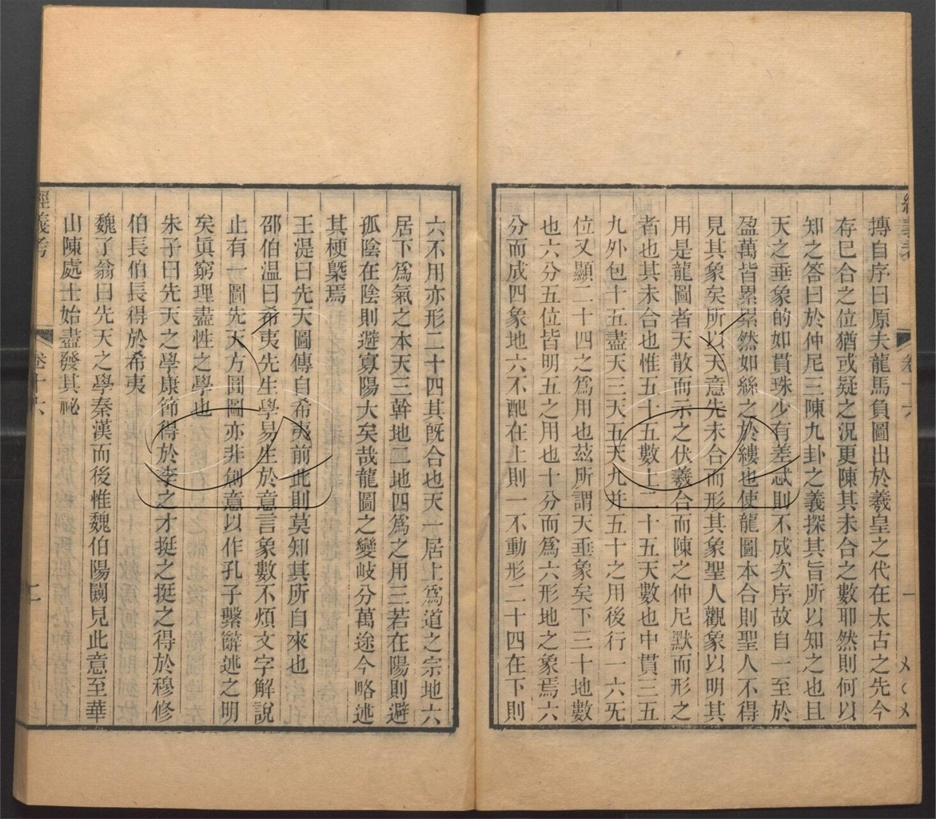 摶自序曰原夫龍馬負圖出於羲皇之代在太古之先今
存已合之位猶或疑之況更陳其未合之數耶然則何以
知之答曰於仲尼三陳九卦之義探其旨所以知之也且
天之垂象的如貫珠少有差忒則不成次序故自一至於
盈萬皆累累然如絲之於縷也使龍圖本合則聖人不得
見其象矣所以天意先未合而形其象聖人觀象以明其
用是龍圖者天散而示之伏羲合而陳之仲尼默而形之
者也其未合也惟五十五數上二十五天數也中貫三五
九外包十五盡天三天五天九并五十之用後行一六旡
位又顯二十四之爲用也茲所謂天垂象矣下三十地數
也六分五位皆明五之用也十分而爲六形地之象焉六
分而成四象地六不配在上則一不動形二十四在下則
六不用亦形二十四其旣合也天一居上爲道之宗地六
居下爲氣之本天三幹地二地四爲之用三若在陽則避
孤陰在陰則避寡陽大矣哉龍圖之變岐分萬途今略述
其梗槩焉
王湜曰先天圖傳自希夷前此則莫知其所自來也
邵伯温曰希夷先生學易生於意言象數不煩文字解說
止有一圖先天方圓圖亦非創意以作孔子繫辭述之明
矣眞窮理盡性之學也
朱子曰先天之學康節得於李之才挺之挺之得於穆修
伯長伯長得於希夷
魏了翁曰先天之學秦漢而後惟魏伯陽闚見此意至華
山陳處士始盡發其祕
經義考
卷十六